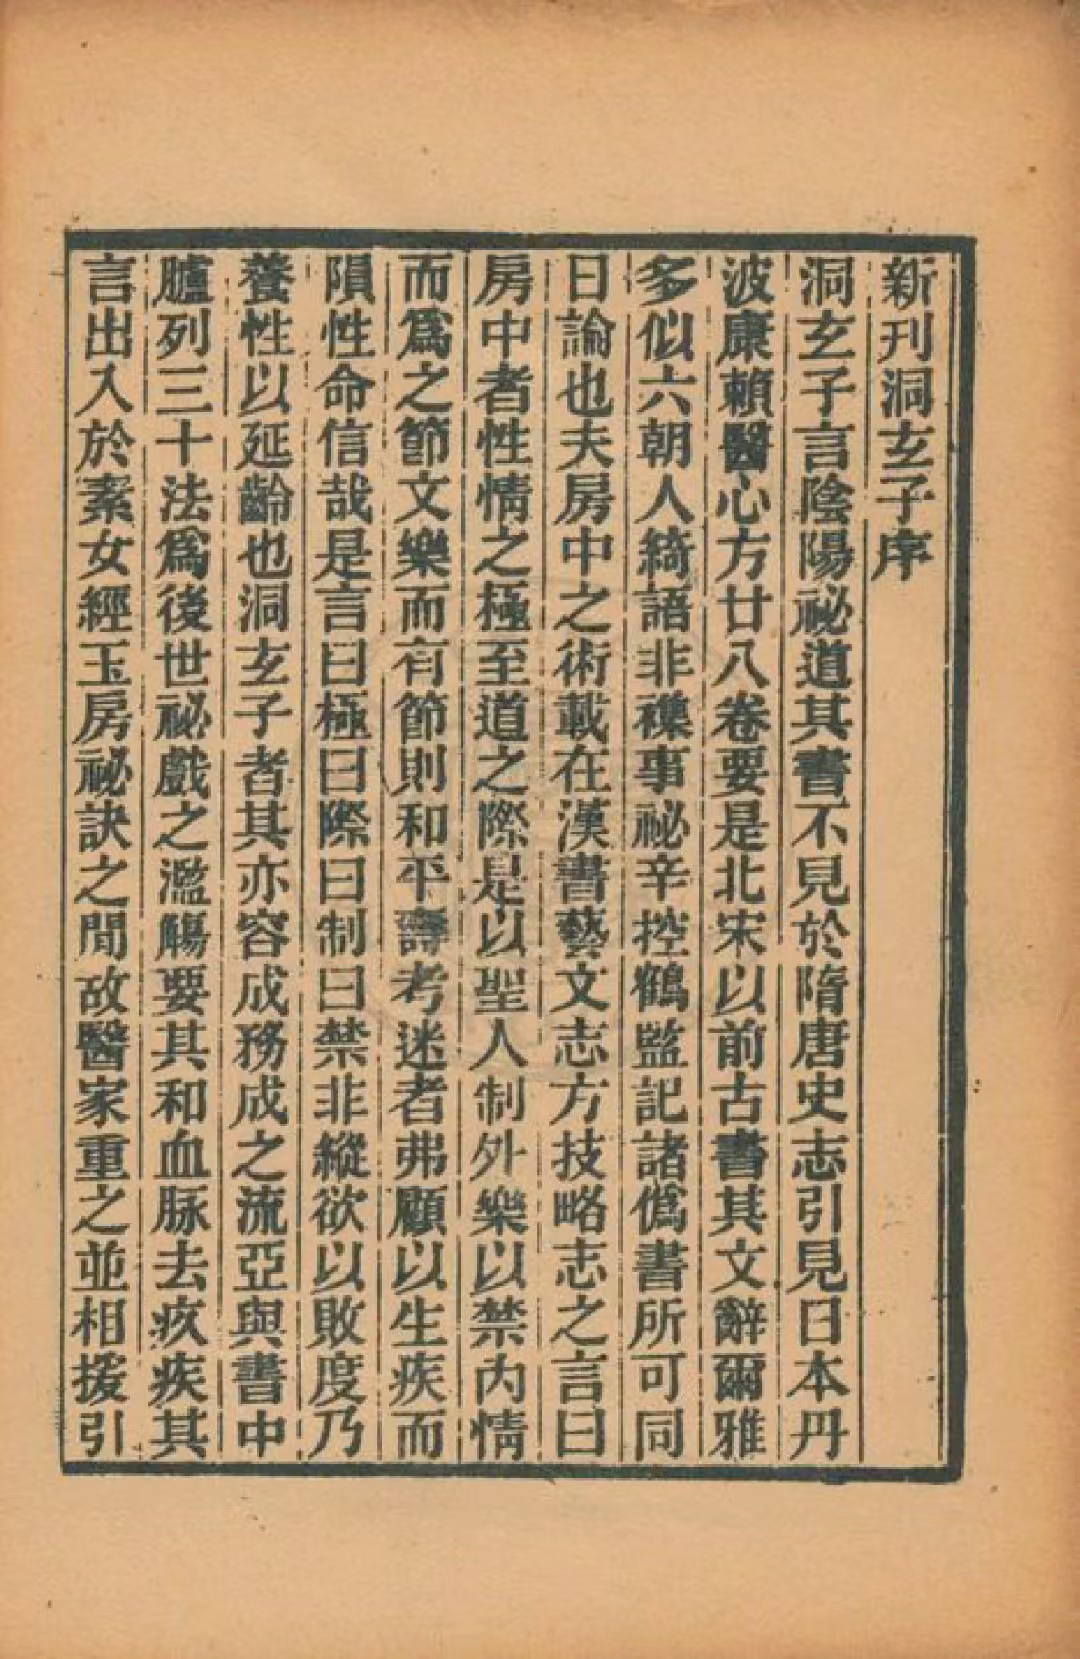 新刊洞玄子序
洞玄子言陰陽祕道其書不見於隋唐史志引見日本丹
波康賴醫心方廿八卷要是北宋以前古書其文辭爾雅
多似六朝人綺語非襍事祕辛控鶴監記諸僞書所可同
日論也夫房中之術載在漢書藝文志方技略志之言曰
房中者性情之極至道之際是以聖人制外樂以禁內情
而爲之節文樂而有節則和平壽考迷者弗顧以生疾而
隕性命信哉是言曰極曰際曰制曰禁非縱欲以敗度乃
養性以延齡也洞玄子者其亦容成務成之流亞與書中
臚列三十法爲後世祕戲之濫觴要其和血脈去疚疾其
言出入於素女經玉房祕訣之間故醫家重之並相援引